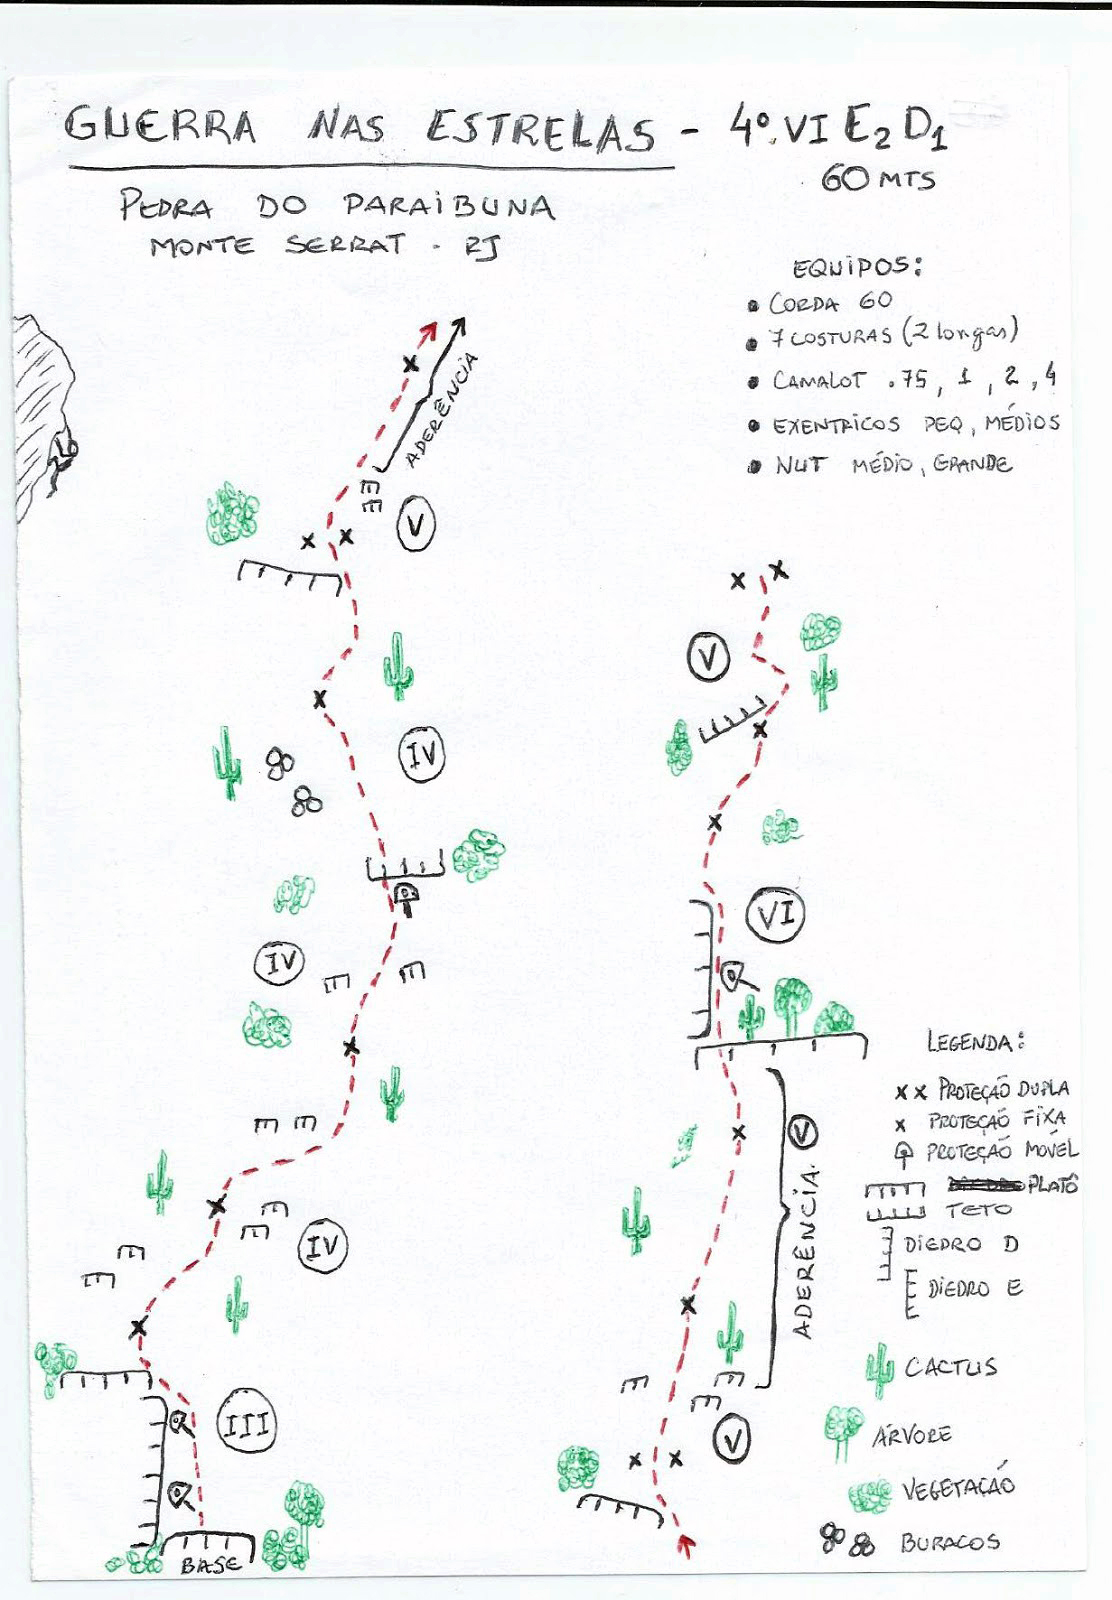 GUERRA NAS ESTRELAS - 4º. VI E2 D1
60 MTS
PEDRA DO PARAIBUNA
MONTE SERRAT - RJ
EQUIPOS:
• CORDA 60
• 7 COSTURAS (2 longas)
• CAMALOT .75, 1, 2, 4
• EXENTRICOS PEQ, MÉDIOS
• NUT MÉDIO, GRANDE
ADERÊNCIA
V
IV
IV
IV
III
BASE
V
VI
ADERÊNCIA. V
V
LEGENDA:
X X PROTEÇÃO DUPLA
X PROTEÇÃO FIXA
PROTEÇÃO MÓVEL
PLATÔ
TETO
DIEDRO D
DIEDRO E
CACTUS
ÁRVORE
VEGETAÇÃO
BURACOS